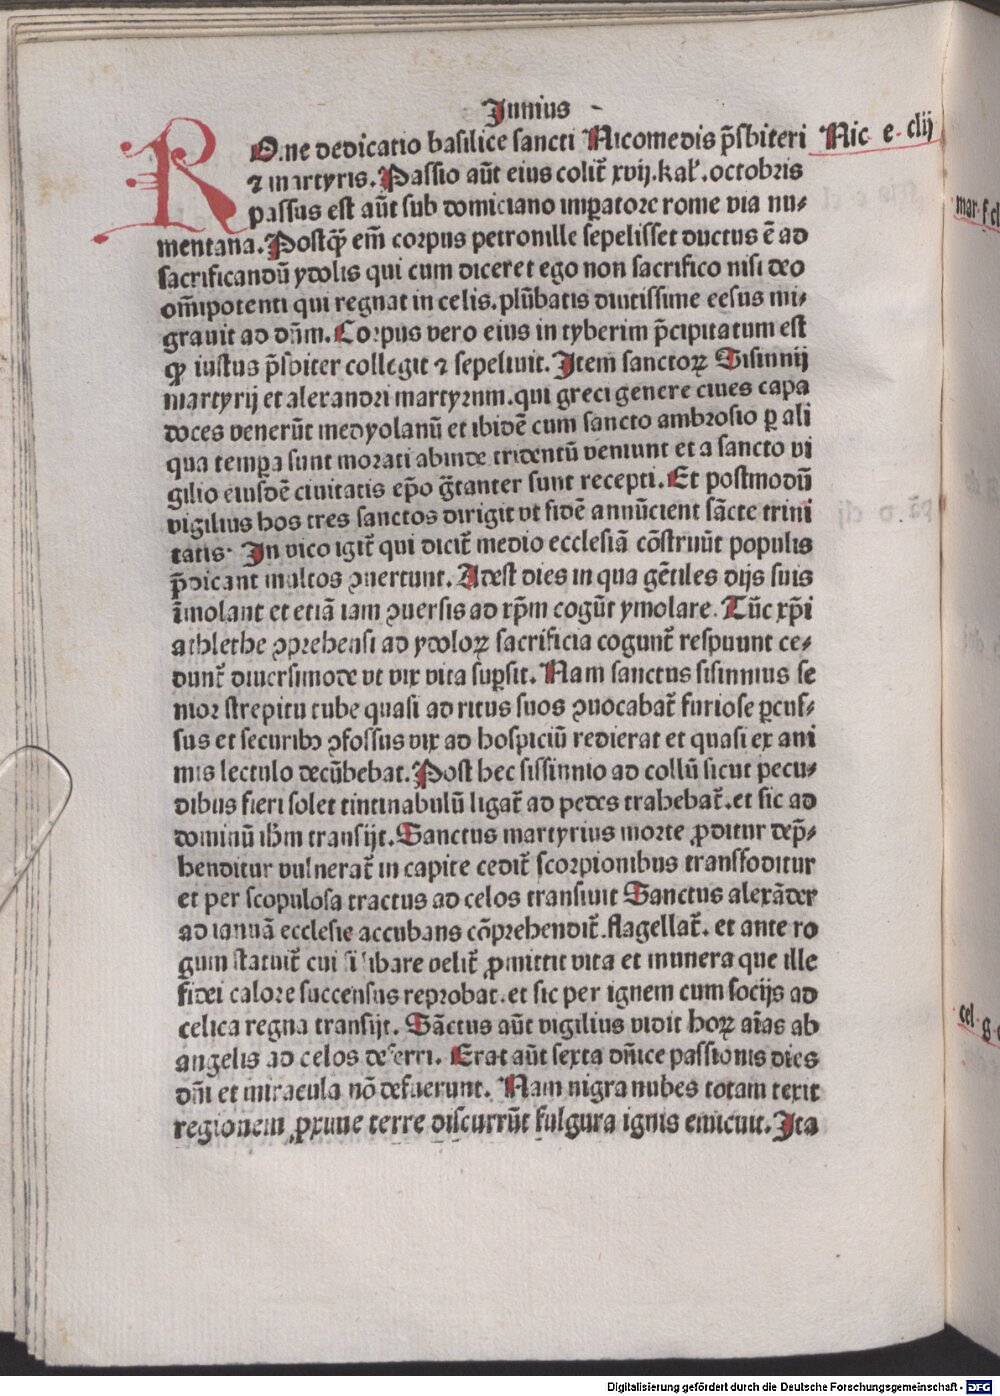 Junius
RO.ne dedicatio basilice sancti Nicomedis p̄sbiteri Nic e. clij
⁊ martyris. Passio aūt eius colit̄ xvij. kal̛. octobris
passus est aūt sub domiciano imꝑatore rome via nu⸗
mentana. Postq̄ꝫ em̄ corpus petronille sepelisset ductus ē ad
sacrificandū ydolis qui cum diceret ego non sacrifico nisi deo
om̄ipotenti qui regnat in celis. plūbatis diutissime cesus mi⸗
grauit ad dn̄m. Corpus vero eius in tyberim p̄cipitatum est
qꝫ iustus p̄sbiter collegit ⁊ sepeliuit. Item sanctoꝝ Sisinnij
martyrij et alexandri martyrum. qui greci genere ciues capa
doces venerūt medyolanū et ibidē cum sancto ambrosio ꝑ ali
qua tempa sunt morati abinde tridentū veniunt et a sancto vi
gilio eiusdē ciuitatis ep̄o gr̄tanter sunt recepti. Et postmodū
vigilius hos tres sanctos dirigit vt fidē annūcient sācte trini
tatis. In vico igit̄ qui dicit̄ medio ecclesiā cōstruūt populis
p̄dicant multos ꝯuertunt. Adest dies in qua gētiles dijs suis
īmolant et etiā iam ꝯuersis ad xp̄m cogūt ymolare. Tūc xp̄i
athlethe ꝯprehensi ad ydoloꝝ sacrificia cogunt̄ respuunt ce⸗
dunt̄ diuersimode vt vix vita suꝑsit. Nam sanctus sisinnius se
nior strepitu tube quasi ad ritus suos ꝯuocabat̄ furiose ꝑcus⸗
sus et securibꝫ ꝯfossus vix ad hospiciū redierat et quasi ex ani
mis lectulo decūbebat. Post hec sissinnio ad collū sicut pecu⸗
dibus fieri solet tintinabulū ligat̄ ad pedes trahebat̄. et sic ad
dominū ihm̄ transijt. Sanctus martyrius morte ꝓditur dep̄⸗
henditur vulnerat̄ in capite cedit̄ scorpionibus transfoditur
et per scopulosa tractus ad celos transiuit Sanctus alexāder
ad ianuā ecclesie accubans cōprehendit̄. flagellat̄. et ante ro
gum statuit̄ cui si libare velit̄ ꝓmittit vita et munera que ille
fidei calore succensus reprobat. et sic per ignem cum socijs ad
celica regna transijt. Sāctus aūt vigilius vidit hoꝝ aīas ab
angelis ad celos deferri. Erat aūt sexta dn̄ice passionis dies
dn̄i et miracula nō defuerunt. Nam nigra nubes totam texit
regionem ꝓxime terre discurrūt fulgura ignis emicuit. Ita
mar. f cl
cel. g c
Digitalisierung gefördert durch die Deutsche Forschungsgemeinschaft - DFG